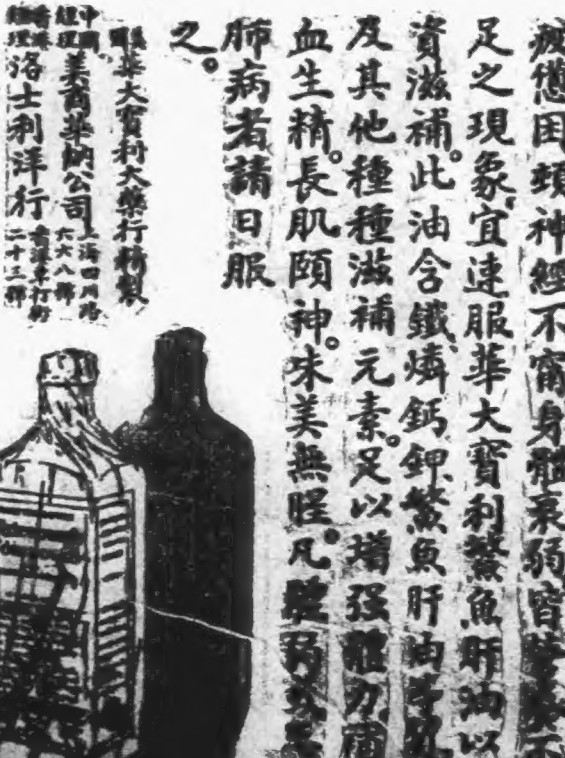 疲憊困頓神經不甯身體衰弱皆
足之現象宜速服華大寶利鰵魚肝油以
資滋補。此油含鐵、燐、鈣、鉀、鰵魚肝油
及其他種種滋補元素。足以增强體力補
血生精。長肌頤神。味美無腥。凡體弱
肺病者請日服
之。
美國華大寶利大藥行精製
中國經理美商華納公司上海四川路六六八號
香港經理洛士利洋行香港打街二十三號